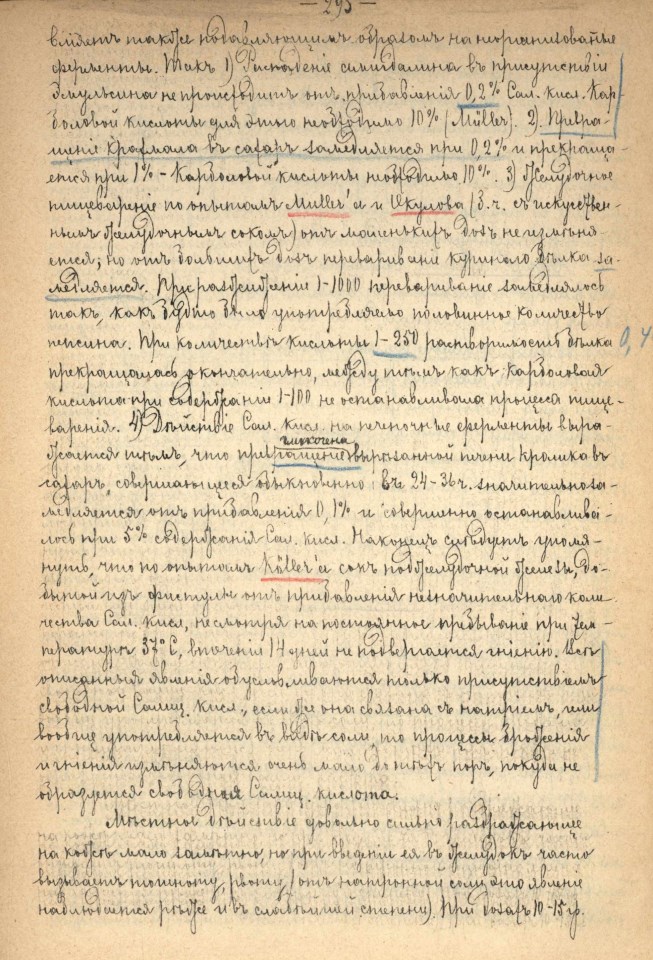 — 295 —
вліяетъ также подавляющимъ образомъ на неорганизованные
ферменты. Такъ 1) Распаденіе амигдалина въ присутствіи
эмульсина не происходитъ отъ прибавленія 0,2% Сал. кисл. Кар-
боловой кислоты для этого необходимо 10% (Müller). 2). Превра-
щеніе крахмала въ сахаръ замедляется при 0,2% и прекраща-
ется при 1% - Карболовой кислоты необходимо 10%. 3) Желудочное
пищевареніе по опытамъ Müller'а и Шкулова (З. ч. съ искуствен-
нымъ желудочнымъ сокомъ) отъ маленькихъ дозъ не измѣня-
ется; но отъ большихъ дозъ перевариваніе куринаго бѣлка за-
медляется. При разжиженіи 1-1000 перевариваніе замедлялось
такъ, какъ будто было употреблено половинное количество
пепсина. При количествѣ кислоты 1-250 растворимость бѣлка 0,4
прекращалась окончательно, между тѣмъ какъ карболовая
кислота при содержаніи 1-100 не останавливала процесса пище-
варенія. 4) Дѣйствіе Сал. кисл. на печеночные ферменты выра-
жается тѣмъ, что превращеніе гликогена вырѣзанной печени кролика въ
сахаръ, совершающееся обыкновенно въ 24-36 ч. значительно за-
медляется отъ прибавленія 0,1% и совершенно останавлива-
лось при 5% содержанія Сал. кисл. Наконецъ слѣдуетъ упомя-
нуть, что по опытамъ Köhler'а сокъ поджелудочной железы, до-
бытой изъ фистулы отъ прибавленія незначительнаго коли-
чества Сал. кисл., несмотря на постоянное пребываніе при тем-
пературѣ 37°C, втеченіи 14 дней не подвергается гніенію. Всѣ
описанныя явленія обусловливаются только присутствіемъ
свободной Салиц. кисл., если же она связана съ натріемъ, или
вообще употребляется въ видѣ соли, то процессы броженія
и гніенія измѣняются очень мало до тѣхъ поръ, покуда не
образуется свободная Салиц. кислота.
Мѣстное дѣйствіе довольно сильно раздражающее
на кожѣ мало замѣтно, но при введеніи ея въ желудокъ часто
вызываетъ тошноту, рвоту, (отъ натронной соли это явленіе
наблюдается рѣже и въ слабѣйшей степени). При дозахъ 10-15 гр.